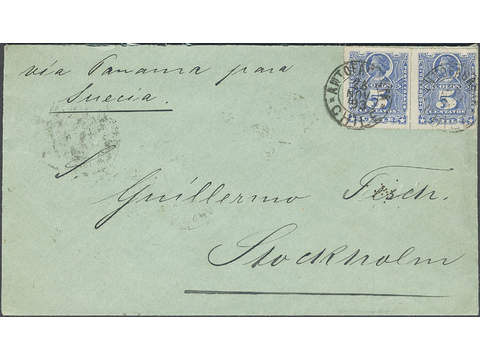 via Panama para
Suecia.
ANTOFA
CHILE
COLON
5
CENTAVOS
COLON
5
CENTAVOS
S.
Guillermo
Stockholm